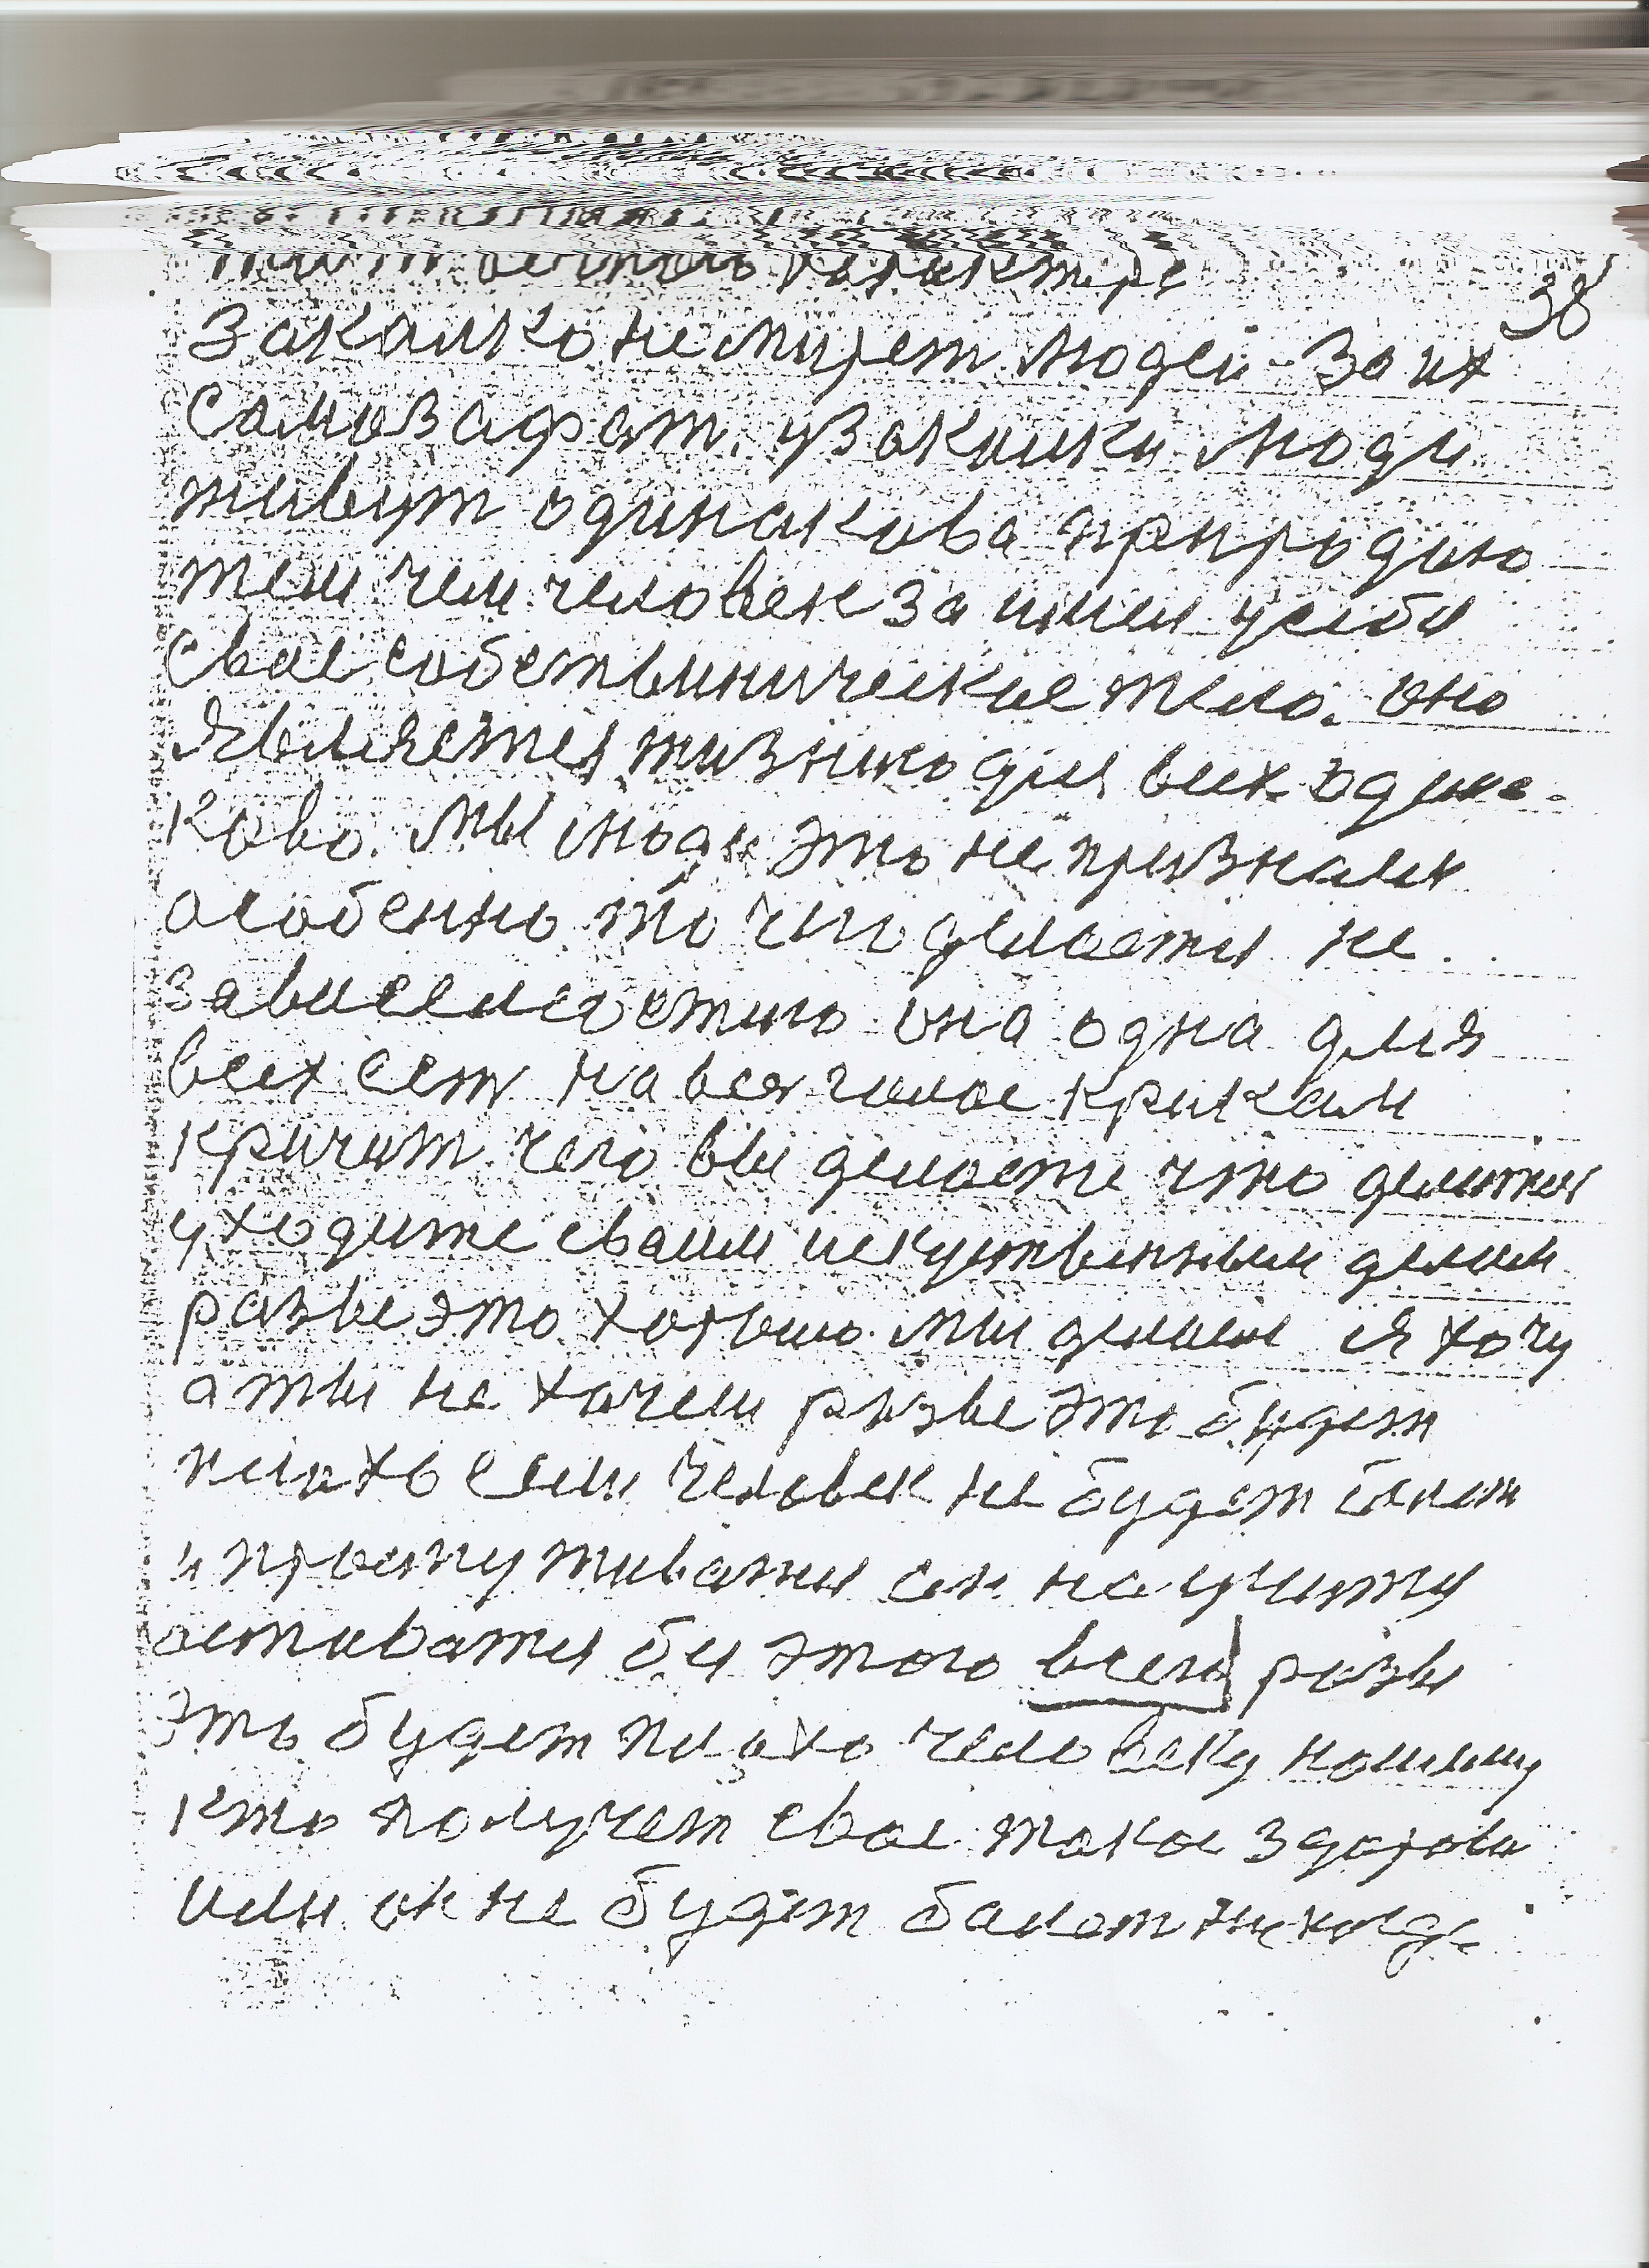 38
Закалка не мирет людей за их
самозафат. узакалки люди
живут одинакова природию
тем чем человек занимал усебя
свае собственическае тело. оно
является жизнию для всих одина-
ково. мы люди это не признали
особенно то чего делоется не
зависемостию она одна для
всех сет на все голае крикам
кричит чего вы делоете что делится
уходите сваими искуственными делами
разве это хорошо. мы делаем ия хочу
а ты не хочеш разве это будет
плохо если человек не будет балет
и простуживатися он научится
оставатся би этого всего разве
это будет плохо человеку нашему
кто получет свае такое здоровия
или он не будет балет никогда